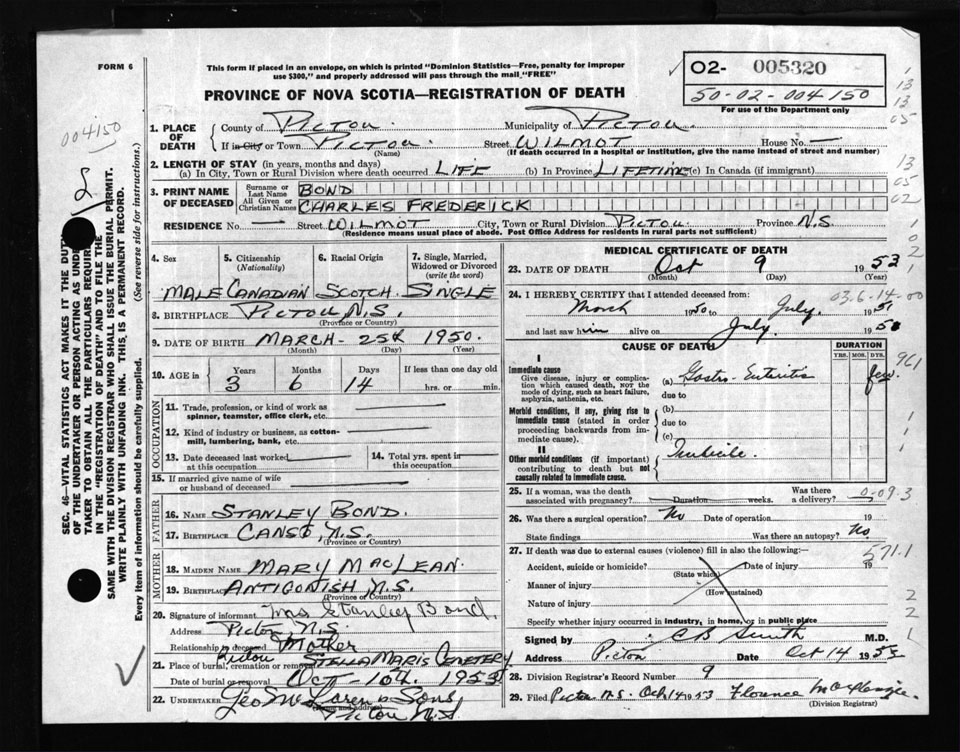 FORM 6
This form if placed in an envelope, on which is printed "Dominion Statistics—Free, penalty for improper
use $300," and properly addressed will pass through the mail "FREE"
PROVINCE OF NOVA SCOTIA—REGISTRATION OF DEATH
O2- 005320
50-02-004150
For use of the Department only
004150
1. PLACE OF DEATH
County of Pictou. Municipality of Pictou.
If in City or Town Pictou. Street WILMOT House No. —
(Name) (If death occurred in a hospital or institution, give the name instead of street and number)
2. LENGTH OF STAY (in years, months and days)
(a) In City, Town or Rural Division where death occurred LIFE (b) In Province LIFETIME (c) In Canada (if immigrant)
3. PRINT NAME OF DECEASED
Surname or Last Name BOND
All Given or Christian Names CHARLES FREDERICK
RESIDENCE No. — Street WILMOT City, Town or Rural Division PICTOU. Province N.S
(Residence means usual place of abode. Post Office Address for residents in rural parts not sufficient)
4. Sex 5. Citizenship (Nationality) 6. Racial Origin 7. Single, Married, Widowed or Divorced (write the word)
MALE CANADIAN SCOTCH. SINGLE
8. BIRTHPLACE PICTOU N.S.
(Province or Country)
9. DATE OF BIRTH MARCH - 25th 1950.
(Month) (Day) (Year)
10. AGE in Years Months Days If less than one day old
3 6 14 hrs. or min.
OCCUPATION
11. Trade, profession, or kind of work as spinner, teamster, office clerk, etc. —
12. Kind of industry or business, as cotton-mill, lumbering, bank, etc. —
13. Date deceased last worked at this occupation — 14. Total yrs. spent in this occupation —
15. If married give name of wife or husband of deceased —
FATHER
16. NAME STANLEY BOND.
17. BIRTHPLACE CANSO, N.S.
(Province or Country)
MOTHER
18. MAIDEN NAME MARY MACLEAN.
19. BIRTHPLACE ANTIGONISH N.S.
(Province or Country)
20. Signature of informant Mrs Stanley Bond.
Address Pictou N.S.
Relationship to deceased Mother
21. Place of burial, cremation or removal Pictou STELLA MARIS CEMETERY
Date of burial or removal Oct - 10th. 1953
22. UNDERTAKER Geo McLaren & Sons
(Name and address)
Pictou N.S
MEDICAL CERTIFICATE OF DEATH
23. DATE OF DEATH Oct 9 1953
(Month) (Day) (Year)
24. I HEREBY CERTIFY that I attended deceased from: 03.6.14-00
March 1950 to July. 19
and last saw him alive on July. 19
CAUSE OF DEATH DURATION
YRS. MOS. DYS.
I
Immediate cause
Give disease, injury or complication which caused death, not the mode of dying, such as heart failure, asphyxia, asthenia, etc.
(a) Gastro-Enteritis few
due to
Morbid conditions, if any, giving rise to immediate cause (stated in order proceeding backwards from immediate cause).
(b)
due to
(c)
II
Other morbid conditions (if important) contributing to death but not causally related to immediate cause.
Imbecile.
25. If a woman, was the death associated with pregnancy? Duration weeks. Was there a delivery? 0-09.3
26. Was there a surgical operation? No Date of operation 19
State findings Was there an autopsy? No
27. If death was due to external causes (violence) fill in also the following:— 571.1
Accident, suicide or homicide? Date of injury 19
(State which)
Manner of injury
(How sustained)
Nature of injury
Specify whether injury occurred in industry, in home, or in public place
Signed by C B Smith M.D.
Address Pictou Date Oct 14 195
28. Division Registrar's Record Number 9
29. Filed Pictou N.S. Oct 14 1953 Florence
(Division Registrar)
SEC. 46—VITAL STATISTICS ACT MAKES IT THE DUTY
OF THE UNDERTAKER OR PERSON ACTING AS UNDER
TAKER TO OBTAIN ALL THE PARTICULARS REQUIRED
IN THE "REGISTRATION OF DEATH" AND TO FILE THE
SAME WITH THE DIVISION REGISTRAR WHO SHALL ISSUE THE BURIAL PERMIT.
WRITE PLAINLY WITH UNFADING INK. THIS IS A PERMANENT RECORD.
Every item of information should be carefully supplied. (See reverse side for instructions.)
1
13
13
05
13
05
02
1
0
2
961
1
1
2
2
1